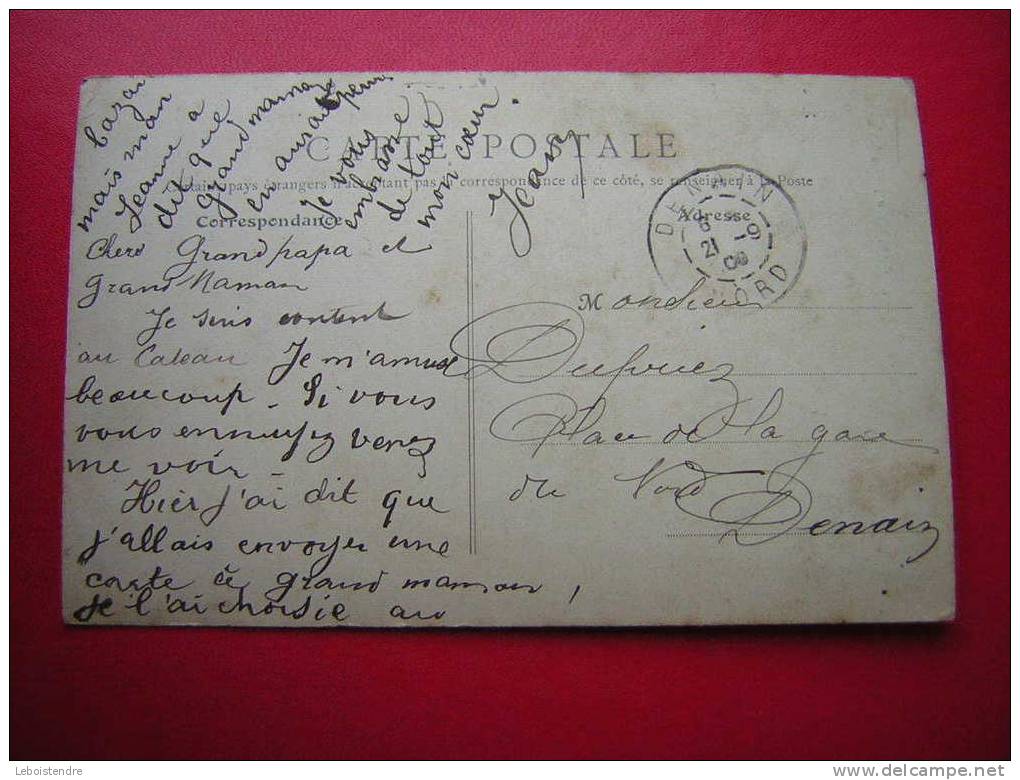 CARTE POSTALE
Certains pays étrangers n'acceptant pas la correspondance de ce côté, se renseigner à la Poste
Correspondance
Adresse
Chers Grandpapa et
grand Maman
Je suis content
au Cateau Je m'amuse
beaucoup. Si vous
vous ennuyiez venez
me voir
Hier j'ai dit que
j'allais envoyer une
carte à grand maman,
je l'ai choisie au
bazar
mais man
Jeanne a
dit que
grand mama
en aurait peur
Je vous
embrasse
de tout
mon cœur.
Jean
DENAIN
21 -9
09
NORD
Monsieur
Place de la gare
du Nord
Denain
Leboistendre
delcampe.net